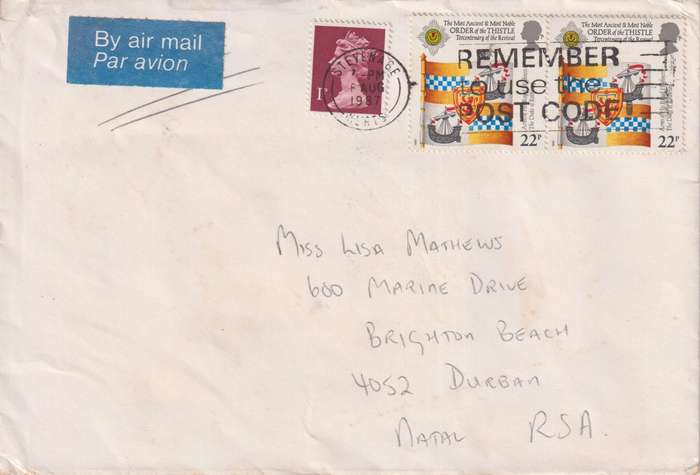 By air mail
Par avion
1P
STEVENAGE
PM
AUG
1987
HERTS
The Most Ancient & Most Noble
ORDER of the THISTLE
Tercentenary of the Revival
22P
The Most Ancient & Most Noble
ORDER of the THISTLE
Tercentenary of the Revival
22P
REMEMBER
to use the
POST CODE
Miss Lisa Mathews
600 Marine Drive
Brighton Beach
4052 Durban
Natal RSA.